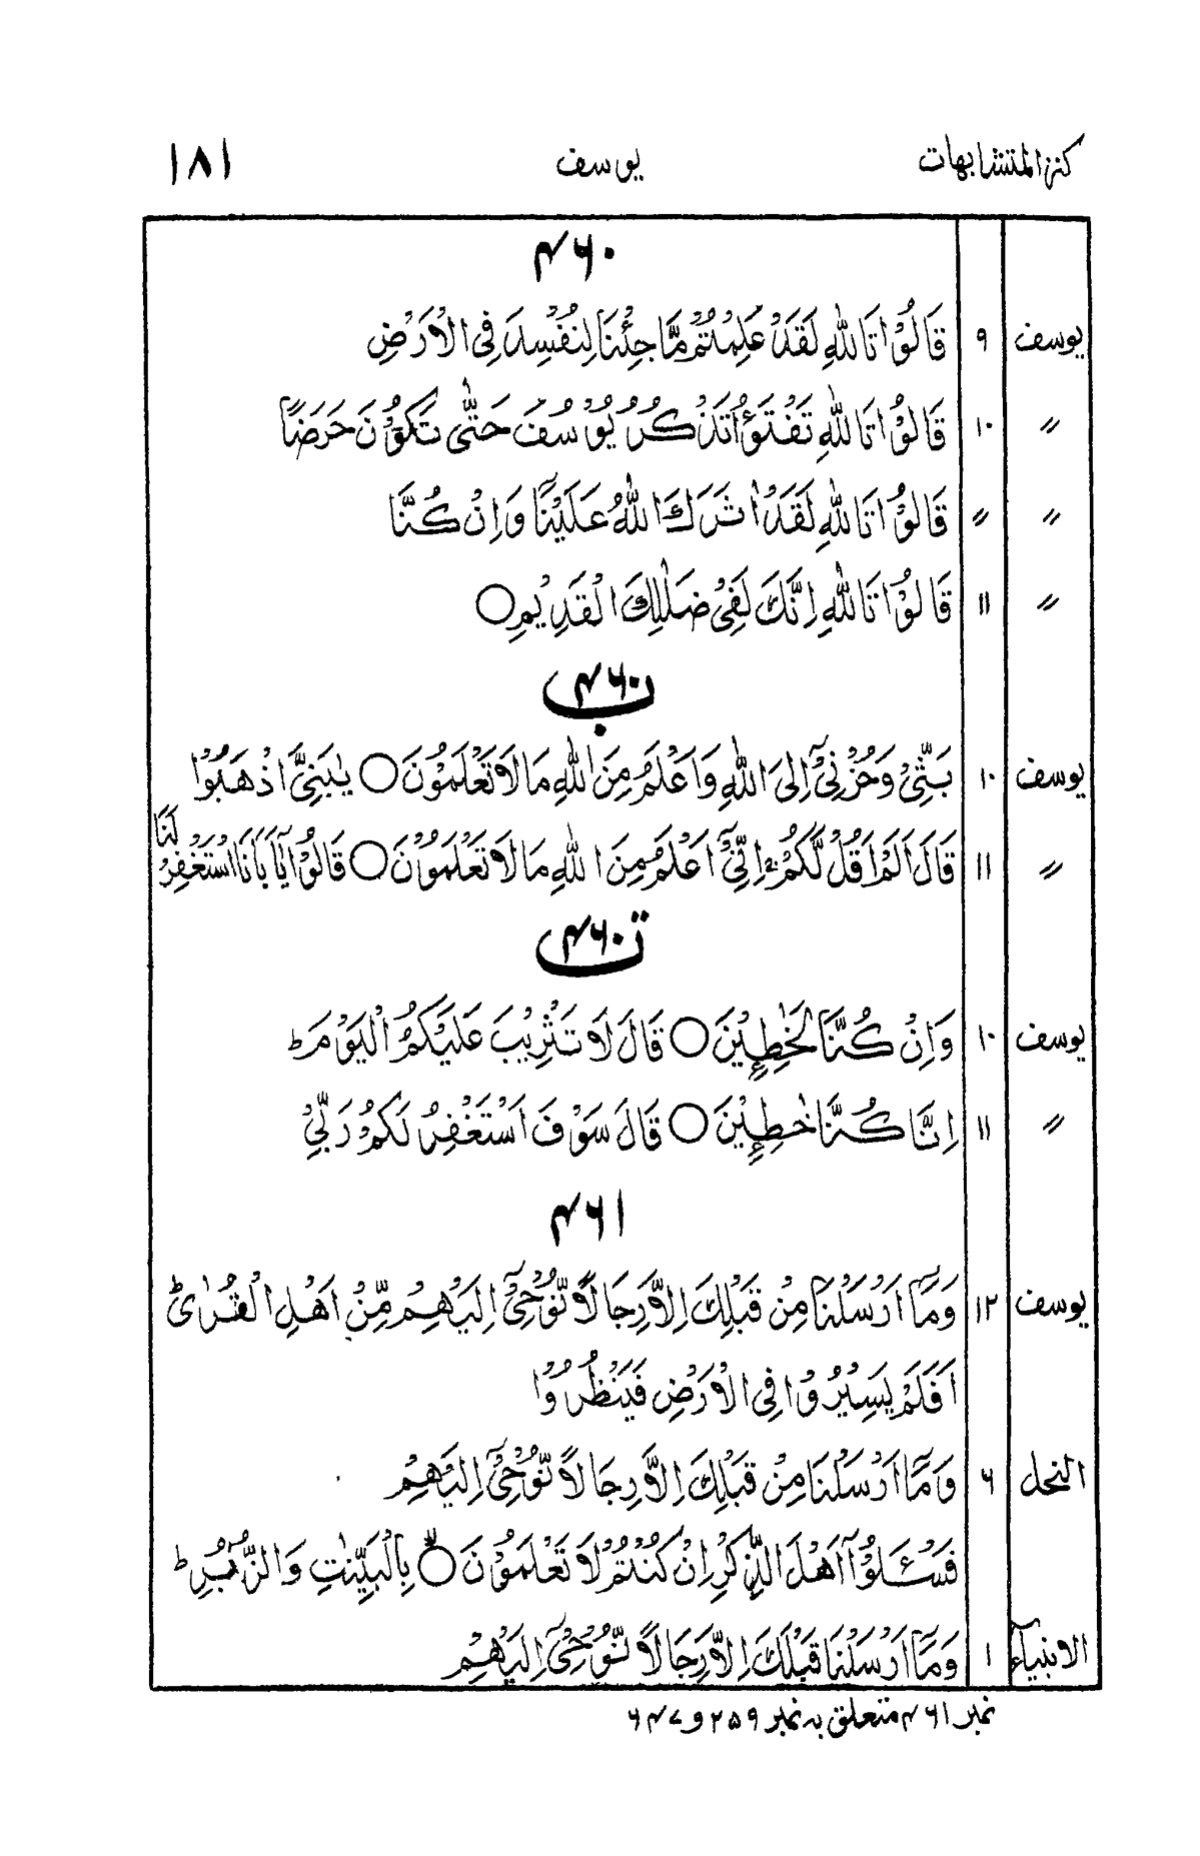 كنز المتشابهات يوسف ١٨١
۴۶۰
يوسف ٩ قَالُوْا تَاللّٰهِ لَقَدْ عَلِمْتُمْ مَّا جِئْنَا لِنُفْسِدَ فِى الْاَرْضِ
〃 ١٠ قَالُوْا تَاللّٰهِ تَفْتَؤُا تَذْكُرُ يُوْسُفَ حَتّٰى تَكُوْنَ حَرَضًا
〃 〃 قَالُوْا تَاللّٰهِ لَقَدْ اٰثَرَكَ اللّٰهُ عَلَيْنَا وَاِنْ كُنَّا
〃 ١١ قَالُوْا تَاللّٰهِ اِنَّكَ لَفِىْ ضَلٰلِكَ الْقَدِيْمِ ○
۴۶۰ ب
يوسف ١٠ بَثِّىْ وَحُزْنِىْٓ اِلَى اللّٰهِ وَاَعْلَمُ مِنَ اللّٰهِ مَا لَا تَعْلَمُوْنَ ○ يٰبَنِىَّ اذْهَبُوْا
〃 ١١ قَالَ اَلَمْ اَقُلْ لَّكُمْ ۚ اِنِّىْٓ اَعْلَمُ مِنَ اللّٰهِ مَا لَا تَعْلَمُوْنَ ○ قَالُوْا يٰٓاَبَانَا اسْتَغْفِرْ لَنَا
۴۶۰ ت
يوسف ١٠ وَاِنْ كُنَّا لَخٰطِـِٕيْنَ ○ قَالَ لَا تَثْرِيْبَ عَلَيْكُمُ الْيَوْمَ ؕ
〃 ١١ اِنَّا كُنَّا خٰطِـِٕيْنَ ○ قَالَ سَوْفَ اَسْتَغْفِرُ لَكُمْ رَبِّىْ
۴۶۱
يوسف ١٢ وَمَآ اَرْسَلْنَا مِنْ قَبْلِكَ اِلَّا رِجَالًا نُّوْحِىْٓ اِلَيْهِمْ مِّنْ اَهْلِ الْقُرٰى ؕ
اَفَلَمْ يَسِيْرُوْا فِى الْاَرْضِ فَيَنْظُرُوْا
النحل ۶ وَمَآ اَرْسَلْنَا مِنْ قَبْلِكَ اِلَّا رِجَالًا نُّوْحِىْٓ اِلَيْهِمْ
فَسْـَٔلُوْٓا اَهْلَ الذِّكْرِ اِنْ كُنْتُمْ لَا تَعْلَمُوْنَ ○ۙ بِالْبَيِّنٰتِ وَالزُّبُرِ ؕ
الانبيآء ١ وَمَآ اَرْسَلْنَا قَبْلَكَ اِلَّا رِجَالًا نُّوْحِىْٓ اِلَيْهِمْ
نمبر ۴۶۱ متعلق بہ نمبر ۲۵۹ و ۶۴۷